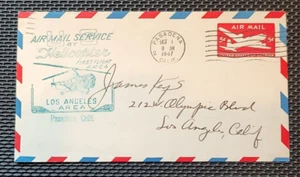 AIR MAIL SERVICE
BY
Helicopter
FIRST FLIGHT
LOS ANGELES
AREA
Pasadena, Calif.
PASADENA
OCT 1
9 AM
1947
CALIF.
AIR MAIL
5¢ 5¢
James Keys
212 Olympic Blvd
Los Angeles, Calif